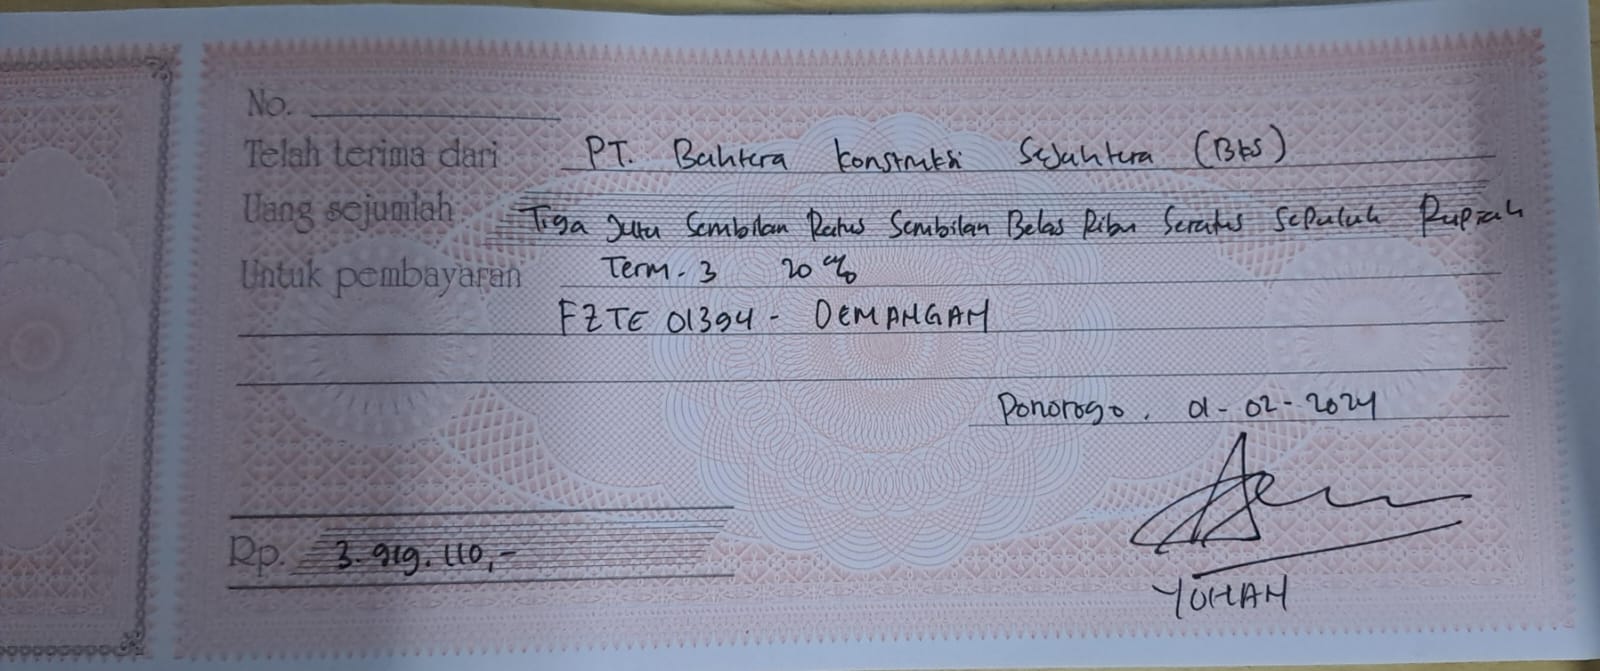 No.
Telah terima dari PT. Bahtera Konstruksi Sejahtera (BKS)
Uang sejumlah Tiga Juta Sembilan Ratus Sembilan Belas Ribu Seratus Sepuluh Rupiah
Untuk pembayaran Term. 3 20%
FZTE 01394 - DEMANGAN
Ponorogo, 01-02-2024
Rp. 3.919.110,-
YOHAN